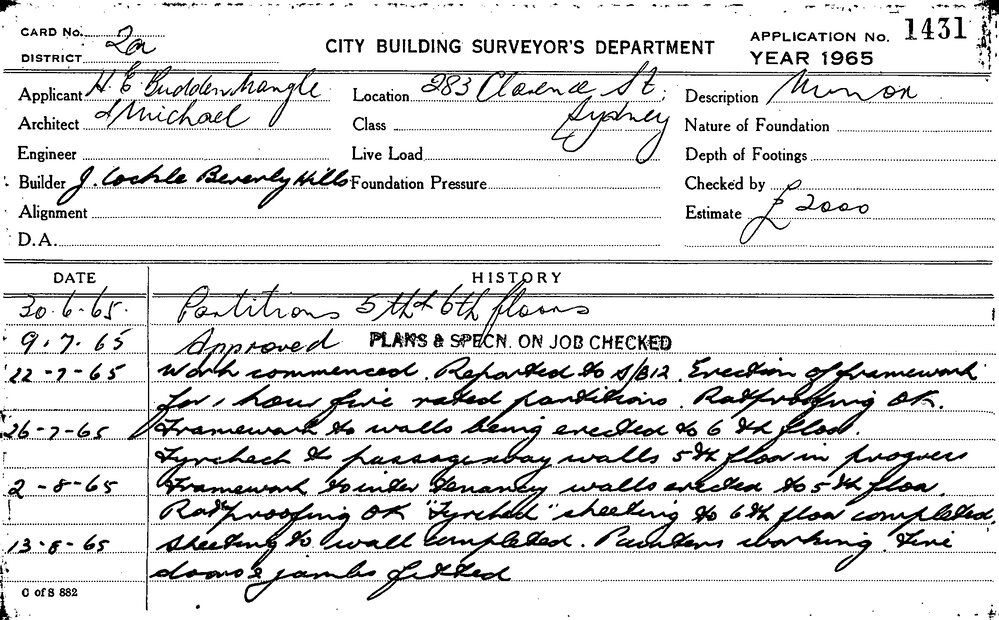 CARD No. 2a
DISTRICT
CITY BUILDING SURVEYOR'S DEPARTMENT
APPLICATION No. 1431
YEAR 1965
Applicant H. E. Budden, Nangle
Location 283 Clarence St,
Description Minor
Architect & Michael
Class Sydney
Nature of Foundation
Engineer
Live Load
Depth of Footings
Builder J. Cockle Beverly Hills
Foundation Pressure
Checked by
Alignment
Estimate £2000
D.A.
DATE HISTORY
30.6.65. Partitions 5th & 6th floors
9.7.65 Approved PLANS & SPECN. ON JOB CHECKED
22-7-65 Work commenced. Reported to S/B12. Erection of framework
for 1 hour fire rated partitions. Ratproofing OK.
26-7-65 Framework to walls being erected to 6th floor.
Fyrcheck to passageway walls 5th floor in progress
2-8-65 Framework to inter tenancy walls erected to 5th floor.
Ratproofing OK "Fyrchek" sheeting to 6th floor completed,
13-8-65 Sheeting to wall completed. Painters working. Fire
doors & jambs fitted
C of S 882